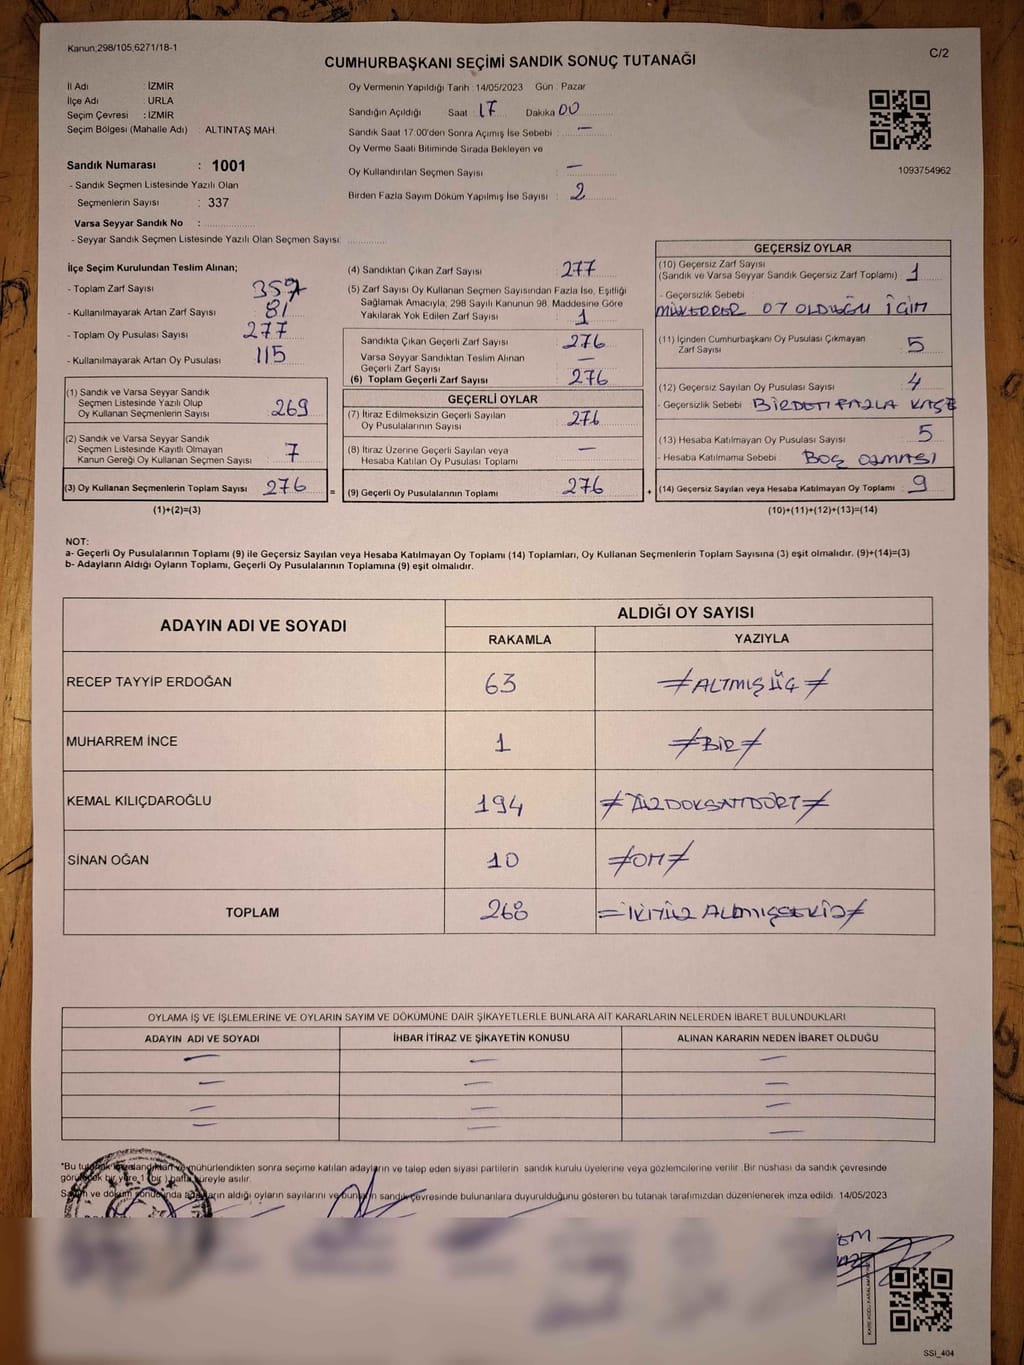 Kanun;298/105,6271/18-1
C/2
CUMHURBAŞKANI SEÇİMİ SANDIK SONUÇ TUTANAĞI
İl Adı : İZMİR
İlçe Adı : URLA
Seçim Çevresi : İZMİR
Seçim Bölgesi (Mahalle Adı) : ALTINTAŞ MAH.
Sandık Numarası : 1001
- Sandık Seçmen Listesinde Yazılı Olan
Seçmenlerin Sayısı : 337
Varsa Seyyar Sandık No :
- Seyyar Sandık Seçmen Listesinde Yazılı Olan Seçmen Sayısı:
Oy Vermenin Yapıldığı Tarih : 14/05/2023 Gün : Pazar
Sandığın Açıldığı Saat : 17 Dakika 00
Sandık Saat 17:00'den Sonra Açımış İse Sebebi : —
Oy Verme Saati Bitiminde Sırada Bekleyen ve
Oy Kullandırılan Seçmen Sayısı : —
Birden Fazla Sayım Döküm Yapılmış İse Sayısı : 2
1093754962
İlçe Seçim Kurulundan Teslim Alınan;
- Toplam Zarf Sayısı 357
- Kullanılmayarak Artan Zarf Sayısı 81
- Toplam Oy Pusulası Sayısı 277
- Kullanılmayarak Artan Oy Pusulası 115
(1) Sandık ve Varsa Seyyar Sandık
Seçmen Listesinde Yazılı Olup
Oy Kullanan Seçmenlerin Sayısı 269
(2) Sandık ve Varsa Seyyar Sandık
Seçmen Listesinde Kayıtlı Olmayan
Kanun Gereği Oy Kullanan Seçmen Sayısı 7
(3) Oy Kullanan Seçmenlerin Toplam Sayısı 276 =
(1)+(2)=(3)
(4) Sandıktan Çıkan Zarf Sayısı 277
(5) Zarf Sayısı Oy Kullanan Seçmen Sayısından Fazla İse, Eşitliği
Sağlamak Amacıyla; 298 Sayılı Kanunun 98. Maddesine Göre
Yakılarak Yok Edilen Zarf Sayısı 1
Sandıkta Çıkan Geçerli Zarf Sayısı 276
Varsa Seyyar Sandıktan Teslim Alınan
Geçerli Zarf Sayısı —
(6) Toplam Geçerli Zarf Sayısı 276
GEÇERLİ OYLAR
(7) İtiraz Edilmeksizin Geçerli Sayılan
Oy Pusulalarının Sayısı 276
(8) İtiraz Üzerine Geçerli Sayılan veya
Hesaba Katılan Oy Pusulası Toplamı —
(9) Geçerli Oy Pusulalarının Toplamı 276 +
GEÇERSİZ OYLAR
(10) Geçersiz Zarf Sayısı
(Sandık ve Varsa Seyyar Sandık Geçersiz Zarf Toplamı) 1
- Geçersizlik Sebebi
MÜKERRER OY OLDUĞU İÇİN
(11) İçinden Cumhurbaşkanı Oy Pusulası Çıkmayan
Zarf Sayısı 5
(12) Geçersiz Sayılan Oy Pusulası Sayısı 4
- Geçersizlik Sebebi BİRDEN FAZLA KAŞE
(13) Hesaba Katılmayan Oy Pusulası Sayısı 5
- Hesaba Katılmama Sebebi : BOŞ OLMASI
(14) Geçersiz Sayılan veya Hesaba Katılmayan Oy Toplamı 9
(10)+(11)+(12)+(13)=(14)
NOT:
a- Geçerli Oy Pusulalarının Toplamı (9) ile Geçersiz Sayılan veya Hesaba Katılmayan Oy Toplamı (14) Toplamları, Oy Kullanan Seçmenlerin Toplam Sayısına (3) eşit olmalıdır. (9)+(14)=(3)
b- Adayların Aldığı Oyların Toplamı, Geçerli Oy Pusulalarının Toplamına (9) eşit olmalıdır.
ADAYIN ADI VE SOYADI
ALDIĞI OY SAYISI
RAKAMLA YAZIYLA
RECEP TAYYİP ERDOĞAN 63 ALTMIŞ ÜÇ
MUHARREM İNCE 1 BİR
KEMAL KILIÇDAROĞLU 194 YÜZDOKSANDÖRT
SİNAN OĞAN 10 ON
TOPLAM 268 İKİYÜZ ALTMIŞSEKİZ
OYLAMA İŞ VE İŞLEMLERİNE VE OYLARIN SAYIM VE DÖKÜMÜNE DAİR ŞİKAYETLERLE BUNLARA AİT KARARLARIN NELERDEN İBARET BULUNDUKLARI
ADAYIN ADI VE SOYADI İHBAR İTİRAZ VE ŞİKAYETİN KONUSU ALINAN KARARIN NEDEN İBARET OLDUĞU
*Bu tutanak imzalandıktan ve mühürlendikten sonra seçime katılan adayların ve talep eden siyasi partilerin sandık kurulu üyelerine veya gözlemcilerine verilir. Bir nüshası da sandık çevresinde
görülecek bir yere 1 (bir) hafta süreyle asılır.
Sayım ve döküm sonucunda adayların aldığı oyların sayılarını ve bunların sandık çevresinde bulunanlara duyurulduğunu gösteren bu tutanak tarafımızdan düzenlenerek imza edildi. 14/05/2023
SSİ_404